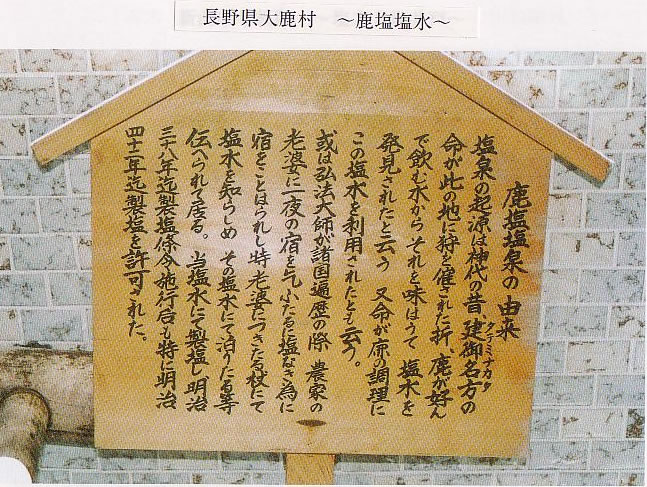 長野県大鹿村　～鹿塩塩水～
鹿塩塩泉の由来
塩泉の起源は神代の昔、建御名方の
タテミナカタ
命が此の地に狩を催された折、鹿が好ん
で飲む水から それを味はうて 塩水を
発見されたと云う 又命が鹿の調理に
この塩水を利用されたとも云う。
或は弘法大師が諸国遍歴の際 農家の
老婆に一夜の宿を乞ふたる塩なき為に
宿をことはられし特老婆につきたる杖にて
塩水を知らしめ その塩水にて泊りたる等
伝へられ居る。当塩水にて製塩し明治
三十八年迄製塩條令施行后も特に明治
四十一年迄製塩を許可された。